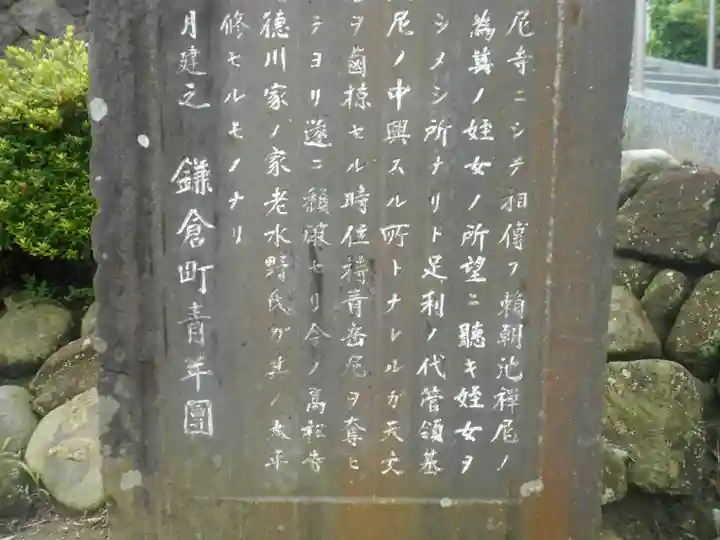 尼寺ニシテ相傳フ頼朝池禅尼ノ
為其ノ姪女ノ所望ニ聽キ姪女ヲ
シメシ所ナリト足利ノ代管領基
尼ノ中興スル所トナレルガ天文
ヲ鹵掠セル時住持青岳尼ヲ奪ヒ
テヨリ遂ニ頽破セリ今ノ高松寺
徳川家ノ家老水野氏ガ其ノ太平
修セルモノナリ
月建之 鎌倉町青年團